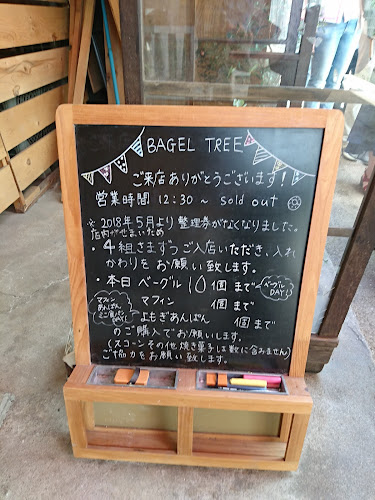 BAGEL TREE
ご来店ありがとうございます!
営業時間 12:30 ~ sold out
※2018年5月より 整理券がなくなりました。
店内がせまいため
・4組さまずつご入店いただき、入れ
かわりを お願い致します。
・本日 ベーグル 10 個 まで
ベーグル
DAY!
マフィン
あんぱん
ミニ食パン
DAY!
マフィン 個 まで
よもぎあんぱん 個 まで
のご購入でお願いします。
(スコーンその他焼き菓子は数に含みません)
ご協力をお願い致します。